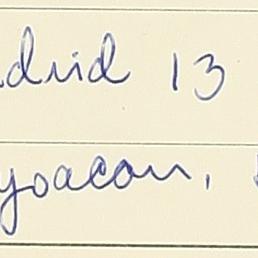 drid 13
yoacan,